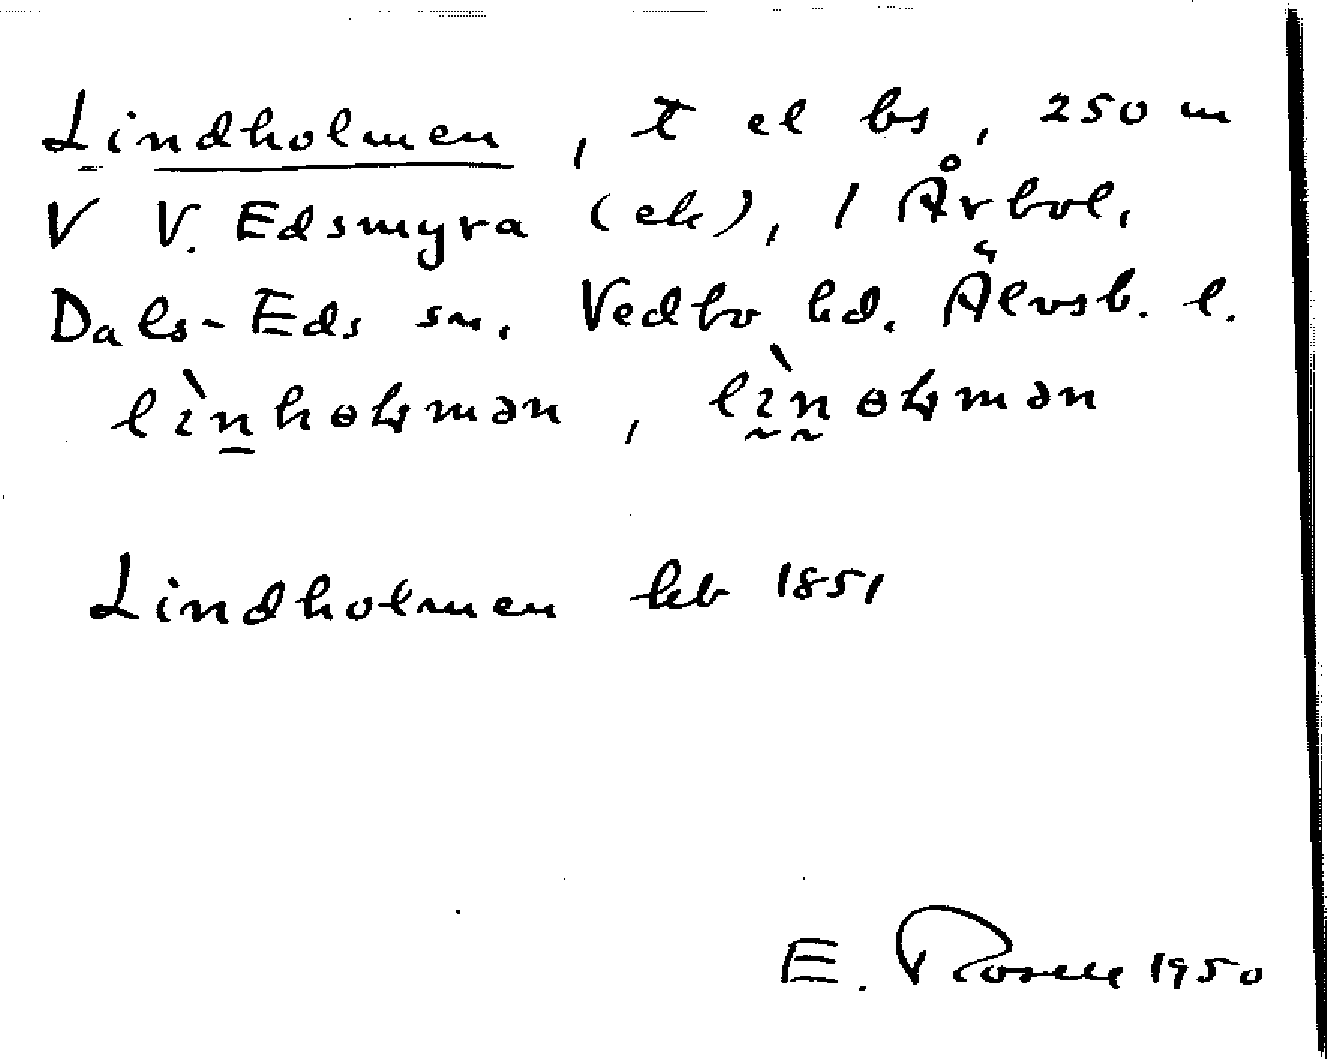 Lindholmen, t el bs, 250 m
V V. Edsmyra (ek), / Årbol,
Dals-Eds sn. Vedbo hd. Älvsb. l.
Lindholmen hb 1851
E. Rosell 1950